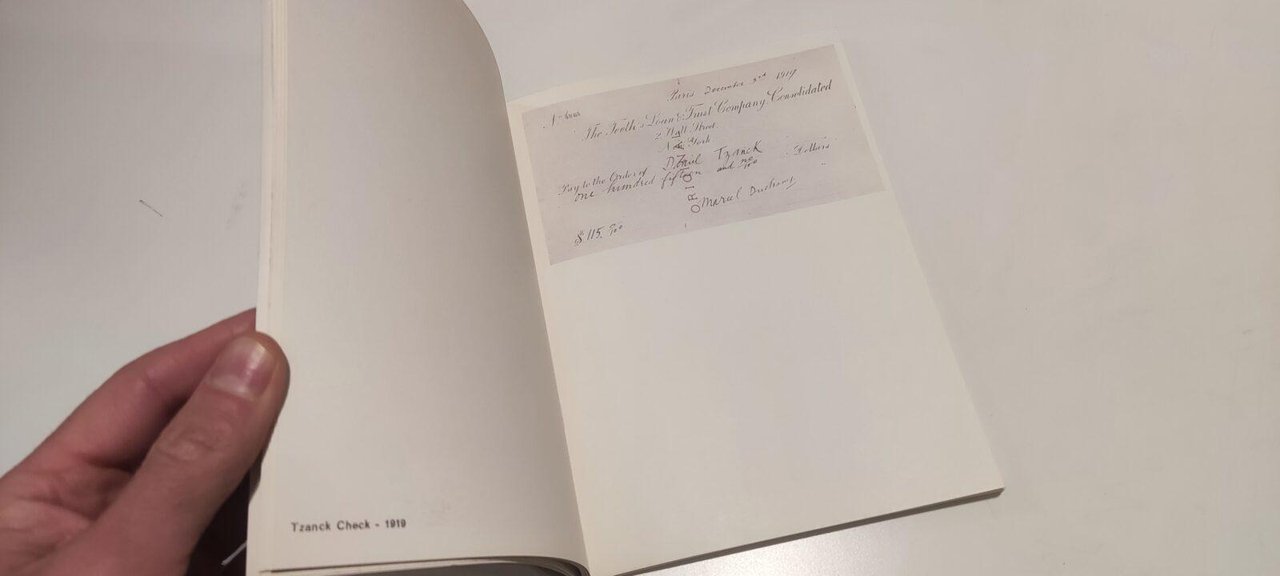 Tzanck Check - 1919
Paris December 3rd 1919
The Teeth's Loan & Trust Company Consolidated
2 Wall Street
New York
Pay to the Order of Tzanck
one hundred fifteen and no/100 Dollars
ORI
Marcel Duchamp
$ 115. no/100